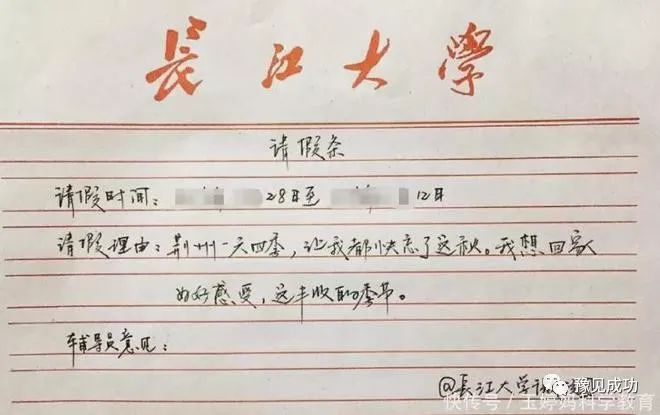 長江大學
请假条
请假时间：28日至12日
请假理由：荆州一天四季，让我都快忘了这秋。我想回家
好好感受，这丰收的季节。
辅导员意见：
@長江大学
豫见成功
快传号／玉婷妈科学教育